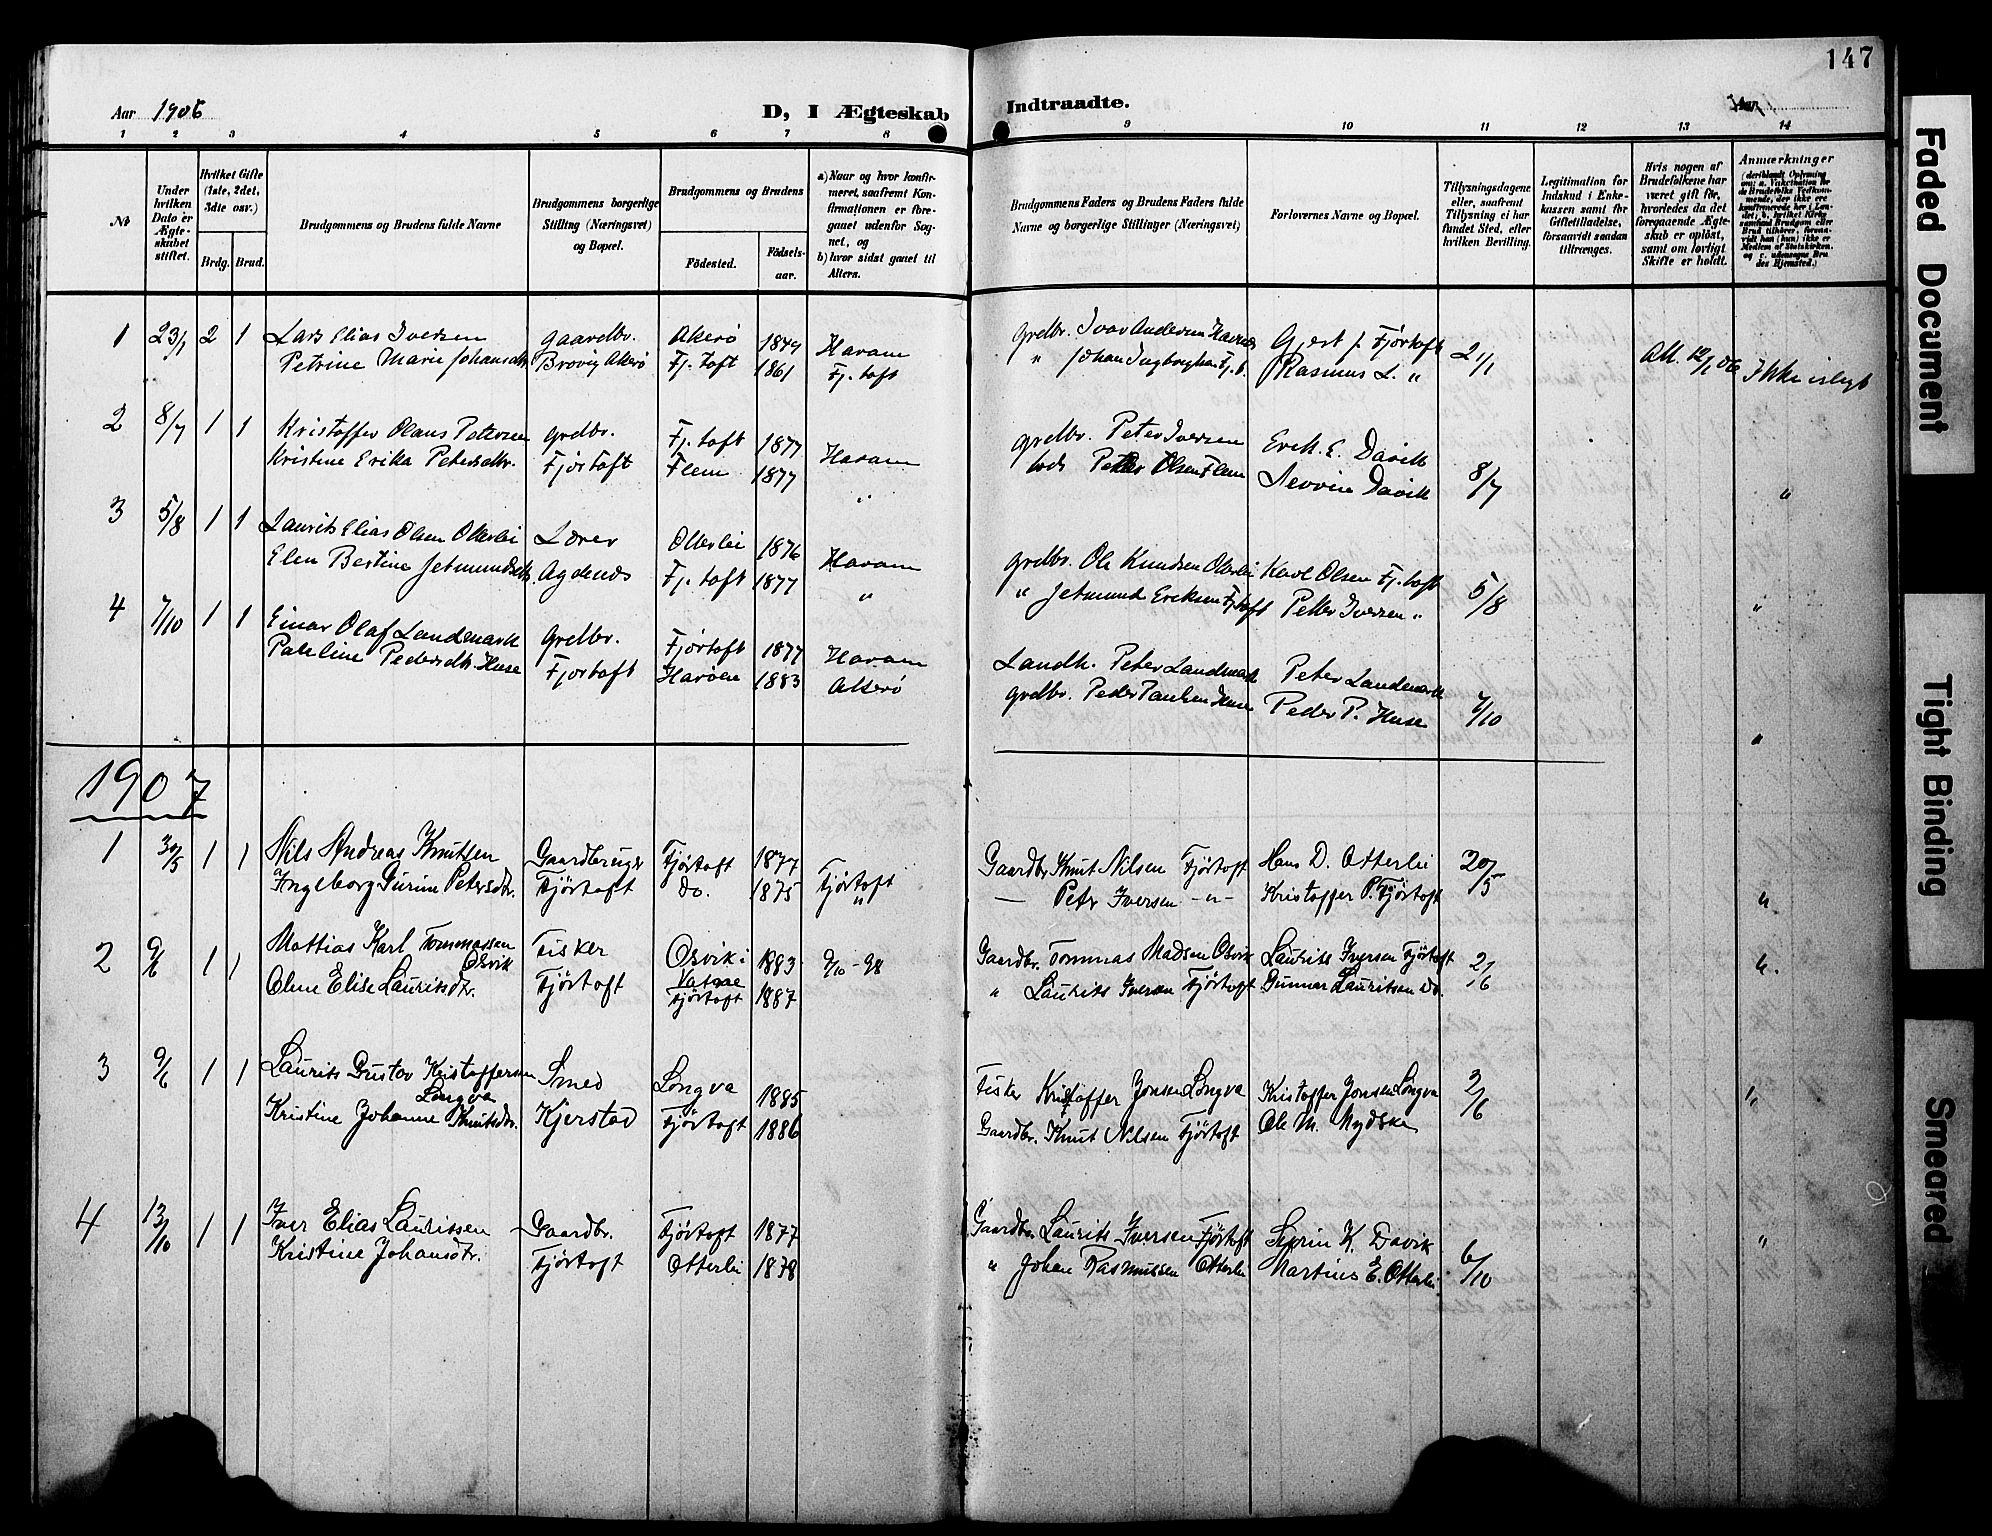 147
Aar 1906
D, I Ægteskab Indtraadte.
Aar
1 2 3 4 5 6 7 8 9 10 11 12 13 14
No
Under hvilken Dato er Ægteskabet stiftet.
Hvilket Gifte (1ste, 2det, 3die osv.)
Brdg. Brud.
Brudgommens og Brudens fulde Navne
Brudgommens borgerlige Stilling (Næringsvei) og Bopæl.
Brudgommens og Brudens
Fødested. Fødselsaar.
a) Naar og hvor konfirmeret, saafremt Konfirmationen er foregaaet udenfor Sognet, og
b) hvor sidst gaaet til Alters.
Brudgommens Faders og Brudens Faders fulde Navne og borgerlige Stillinger (Næringsvei)
Forlovernes Navne og Bopæl.
Tillysningsdagene eller, saafremt Tillysning ei har fundet Sted, efter hvilken Bevilling.
Legitimation for Indskud i Enkekassen samt for Giftetilladelse, forsaavidt saadan tiltrænges.
Hvis nogen af Brudefolkene har været gift før, hvorledes da det foregaaende Ægteskab er opløst, samt om lovligt Skifte er holdt.
Anmærkninger
1 23/1 2 1 Lars Elias Iversen Gaardbr. Akerø 1849 Haram Grdbr. Ivar Andersen Gjert J. Fjørtoft 21/1 Att. 12/1 06
Petrine Marie Johansdtr. Brovig Akerø Fj.toft 1861 Fj.toft " Johan Rasmus L. " Ikke islegt
2 8/7 1 1 Kristoffer Olaus Petersen Grdbr. Fj.toft 1877 Haram Grdbr. Peter Iversen Erik E. Davik 8/7
Kristine Erika Petersdtr. Fjørtoft Flem 1877 " Peter Olsen Flem Sevrin Davik "
3 5/8 1 1 Laurits Elias Olsen Otterlei Lærer Otterlei 1876 Haram Grdbr. Ole Knudsen Otterlei Karl Olsen Fj.toft 5/8
Elen Bertine Jetmundsdtr. Agdenes Fj.toft 1877 " " Jetmund Eriksen Fj.toft Petter Iversen " "
4 7/10 1 1 Einar Olaf Landmark Grdbr. Fjørtoft 1877 Haram Landh. Peter Landmark Peter Landmark 7/10
Pauline Pedersdtr. Huse Fjørtoft Harøen 1883 Akerø Grdbr. Peder Paulsen Huse Peder P. Huse "
1907
1 30/5 1 1 Nils Andreas Knutsen Gaardbruger Fjørtoft 1877 Fjørtoft Gaardbr. Knut Nilsen Fjørtoft Hans D. Otterlei 20/5
Ingeborg Gurine Petersdtr. Fjørtoft do. 1875 " — Peter Iversen -"- Kristoffer P. Fjørtoft "
2 9/6 1 1 Mattias Karl Tommassen Fisker Osvik i 1883 9/10-98 Gaardbr. Tommas Madsen Osvik Laurits Iversen Fjørtoft 2/6
Osvik Vatne
Oline Elise Lauritsdtr. Fjørtoft Fjørtoft 1887 " Laurits Iversen Fjørtoft Gunnar Lauritsen do. "
3 9/6 1 1 Laurits Gustav Kristoffersen Smed Longva 1885 Fisker Kristoffer Jonsen Longva Kristoffer Jonsen Longva 2/6 "
Longva
Kristine Johanne Knutsdtr. Kjerstad Fjørtoft 1886 Gaardbr. Knut Nilsen Fjørtoft Ole M. Mydske
4 13/10 1 1 Iver Elias Lauritsen Gaardbr. Fjørtoft 1877 Gaardbr. Laurits Iversen Fjørtoft K. Davik 6/10 "
Kristine Johansdtr. Fjørtoft Otterlei 1878 " Johan Rasmussen Otterlei Martinus E. Otterlei
Faded Document
Tight Binding
Smeared